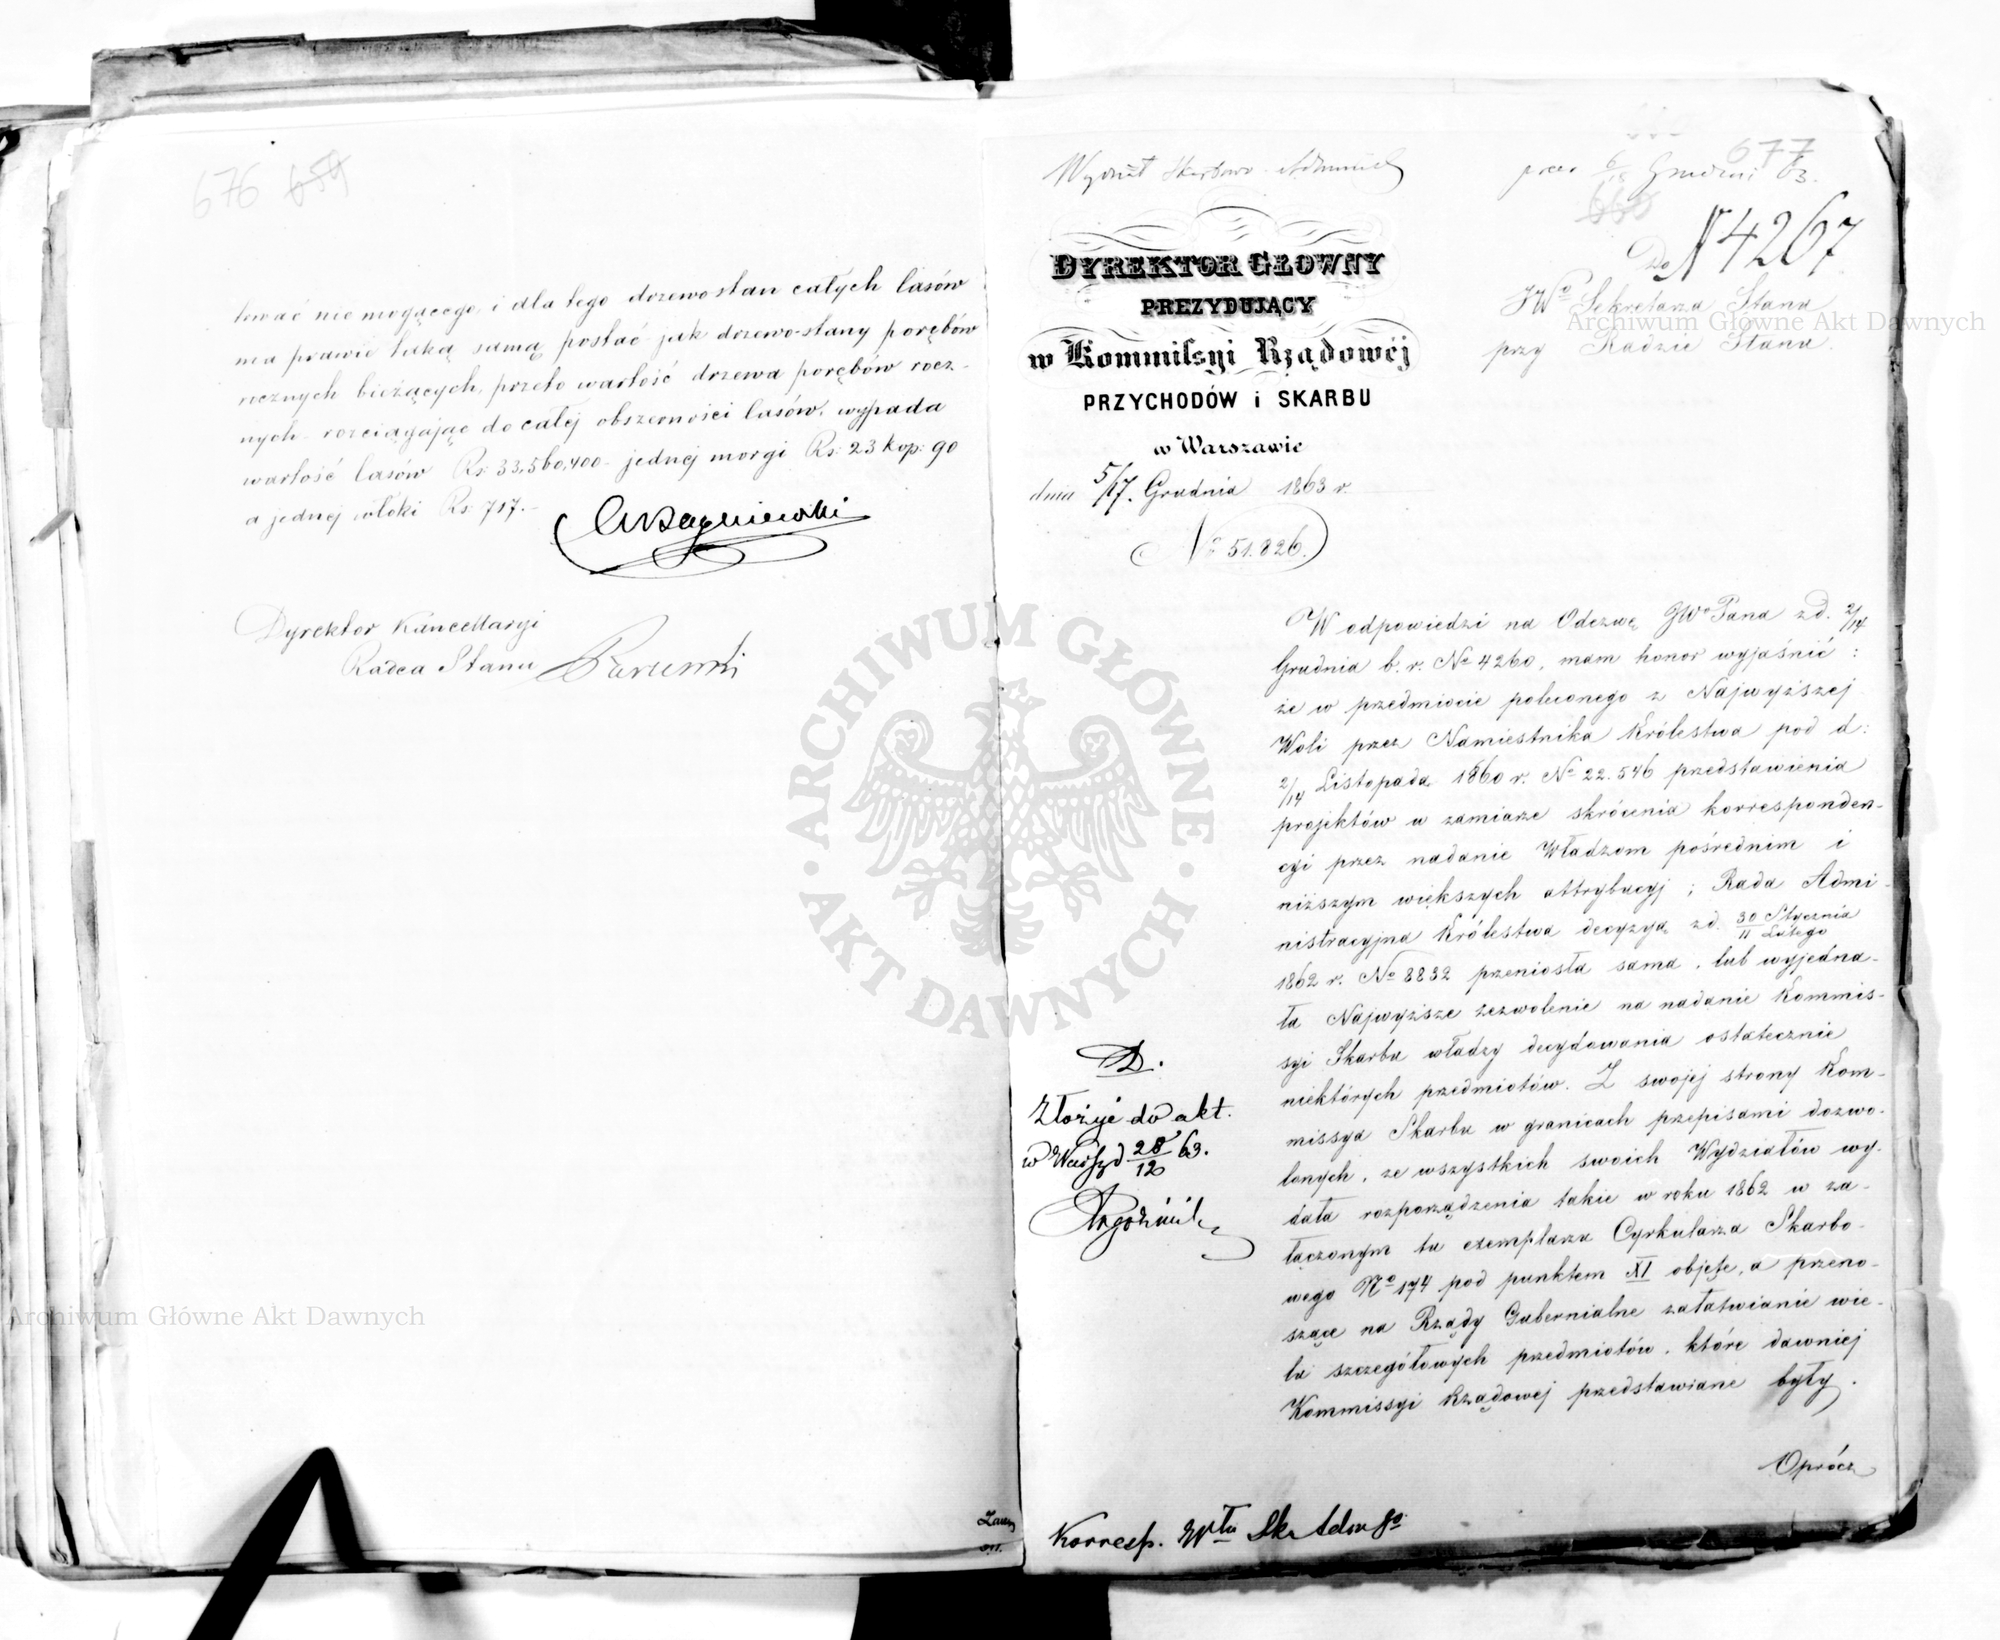 676 654
tować nie mogącego, i dla tego drzewostan całych lasów
ma prawie taką samą postać jak drzewo-stany porębów
rocznych bieżących, przeto wartość drzewa porębów rocz-
nych rozciągając do całej obszerności lasów, wypada
wartość lasów Rs: 33,560,400 jednej morgi Rs: 23 kop: 90
a jednej włóki Rs: 717.-
Dyrektor Kancellaryi
Radca Stanu
Wydział Skarbowo-Administ
677
prez 6/18 Grudnia 63.
660
N 4267
DYREKTOR GŁÓWNY
PREZYDUJĄCY
w Kommissyi Rządowéj
PRZYCHODÓW i SKARBU
w Warszawie
dnia 5/17. Grudnia 1863 r.
No 51.826.
Do
JWo Sekretarza Stanu
przy Radzie Stanu.
W odpowiedzi na Odezwę JWo Pana z d. 2/14
Grudnia b. r. No 4260, mam honor wyjaśnić:
że w przedmiocie poleconego z Najwyższej
Woli przez Namiestnika Królestwa pod d:
2/14 Listopada 1860 r. No 22.546 przedstawienia
projektów w zamiarze skrócenia korresponden-
cyi przez nadanie Władzom pośrednim i
niższym większych attrybucyj; Rada Admi-
nistracyjna Królestwa decyzyą z d. 30 Stycznia / 11 Lutego
1862 r. No 8832 przeniosła sama, lub wyjedna-
ła Najwyższe zezwolenie na nadanie Kommis-
syi Skarbu władzy decydowania ostatecznie
niektórych przedmiotów. Z swojej strony Kom-
missya Skarbu w granicach przepisami dozwo-
lonych, ze wszystkich swoich Wydziałów wy-
dała rozporządzenia takie w roku 1862 w za-
łączonym tu exemplarzu Cyrkularza Skarbo-
wego No 174 pod punktem XI objęte, a przeno-
szące na Rządy Gubernialne załatwianie wie-
lu szczegółowych przedmiotów, które dawniej
Kommissyi Rządowej przedstawiane były.
Oprócz
D.
Złożyć do akt.
w Warsz d 28/12 63.
Korresp. Włu Sk. Admgo
ARCHIWUM GŁÓWNE AKT DAWNYCH
Archiwum Główne Akt Dawnych
Archiwum Główne Akt Dawnych